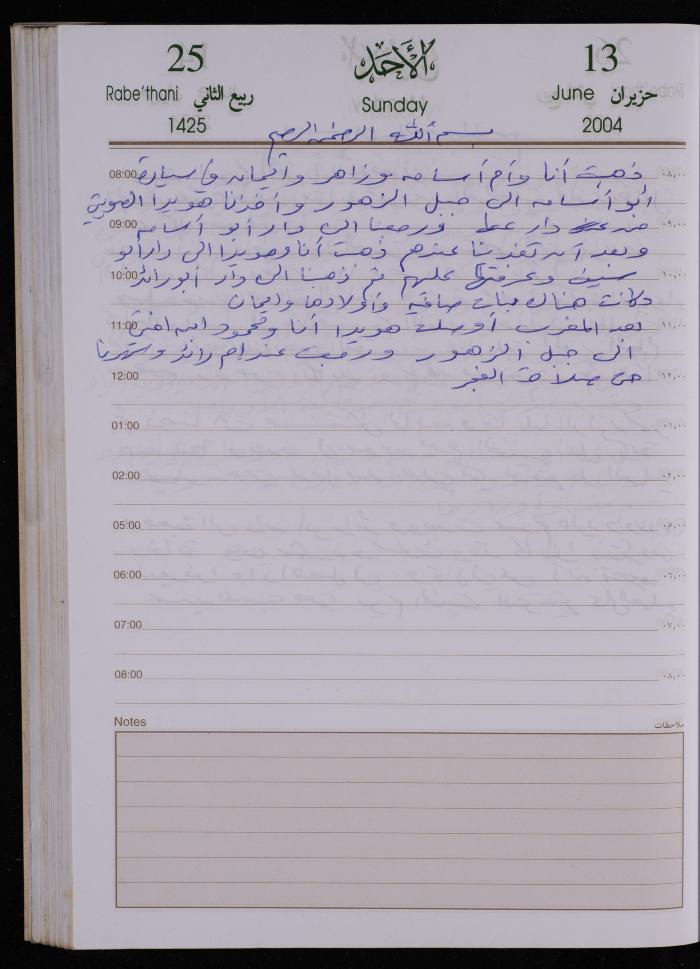 25 الأحد 13
Rabe'thani ربيع الثاني Sunday June حزيران
1425 2004
بسم الله الرحمن الرحيم
08:00 ذهبت أنا وأم أسامه وزاهر وايمان في سيارة ٠٨,٠٠
أبو أسامه الى جبل الزهور وأخذنا هويدا
09:00 من دار ورجعنا الى دار أبو أسامه ٠٩,٠٠
وبعد أن تغدينا عندهم ذهبت أنا وهويدا الى دار أبو
10:00 وعرفتها عليهم ثم ذهبنا الى دار أبو رائد ١٠,٠٠
وكانت هناك بنات صافيه وأولادها وايمان
11:00 بعد المغرب أوصلت هويدا أنا ومحمود ابن اختي ١١,٠٠
الى جبل الزهور ورجعت عند ام رائد وسهرنا
12:00 حتى صلاة الفجر ١٢,٠٠
01:00 ٠١,٠٠
02:00 ٠٢,٠٠
05:00 ٠٥,٠٠
06:00 ٠٦,٠٠
07:00 ٠٧,٠٠
08:00 ٠٨,٠٠
Notes ملاحظات